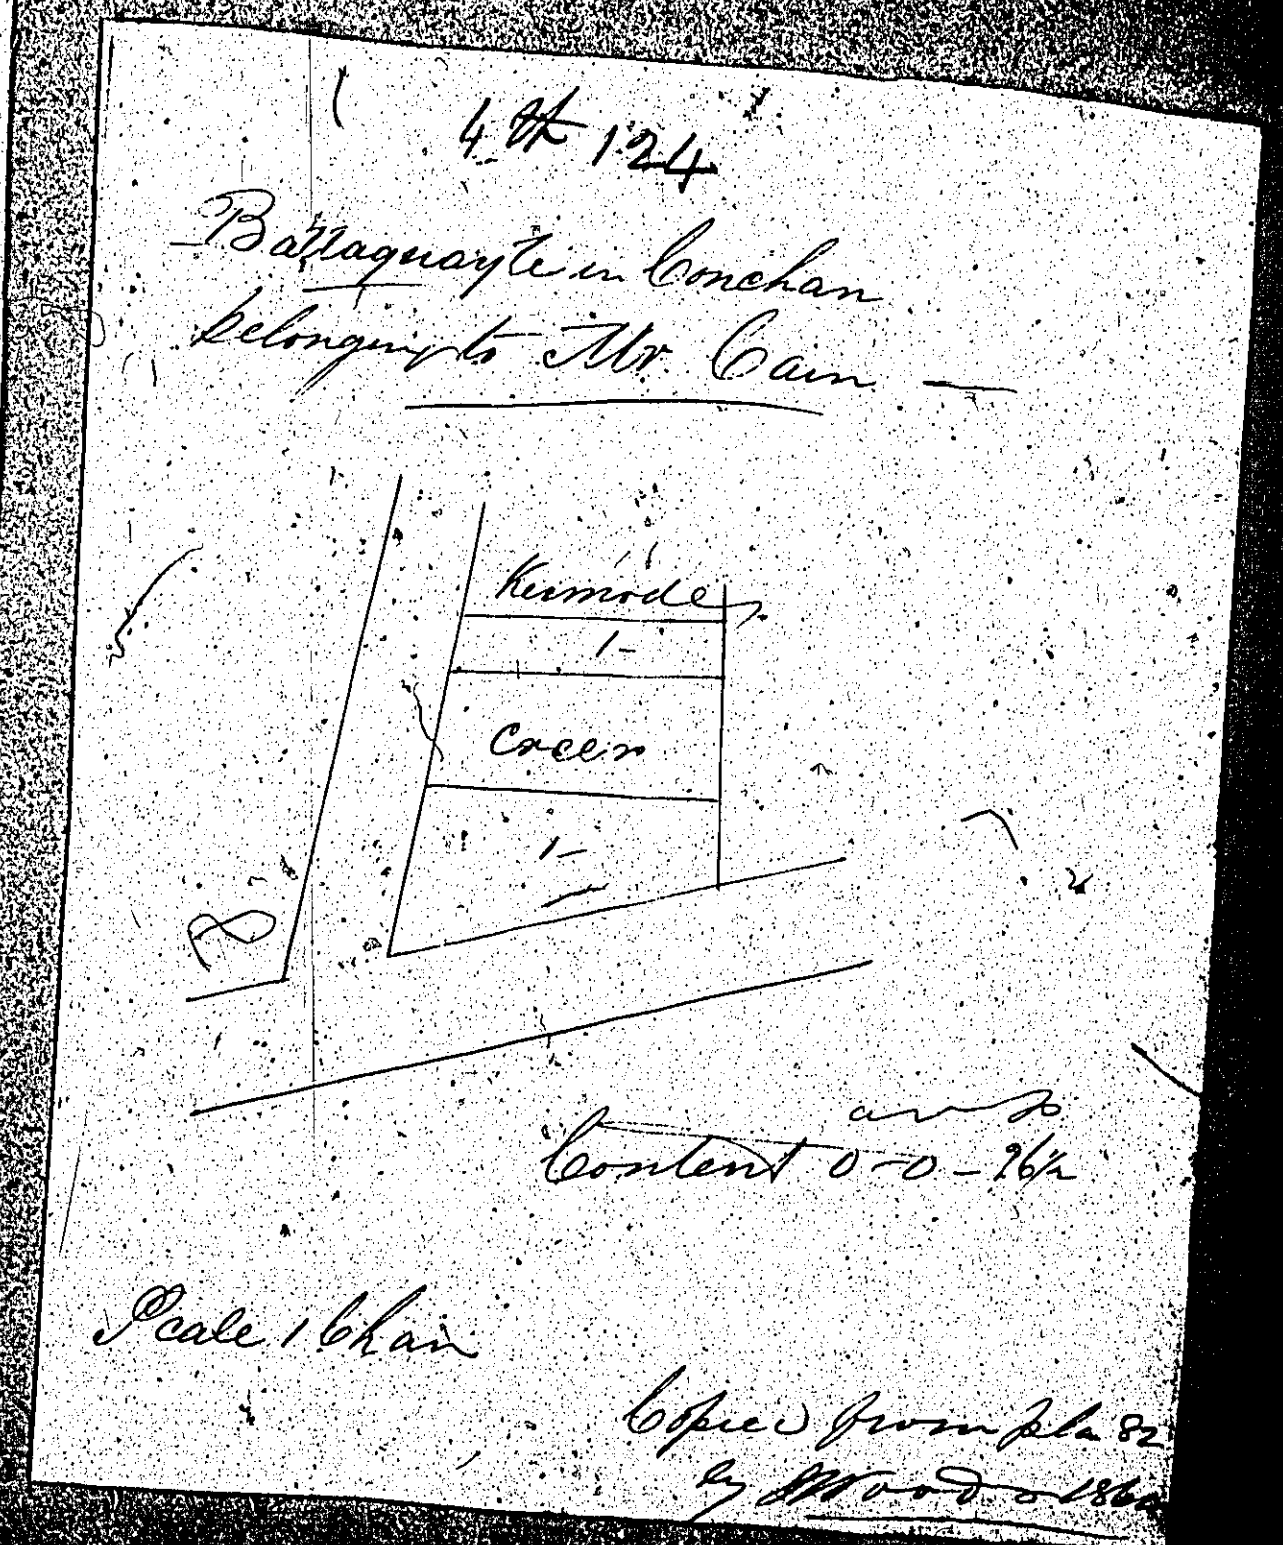 4th 124
Ballaquayle in Conchan
belonging to Mr. Cain
Kermode
1-
Creer
1-
a r p
Content 0-0-26½
Scale 1 Chain
Copied from plan 82
by JWood 186